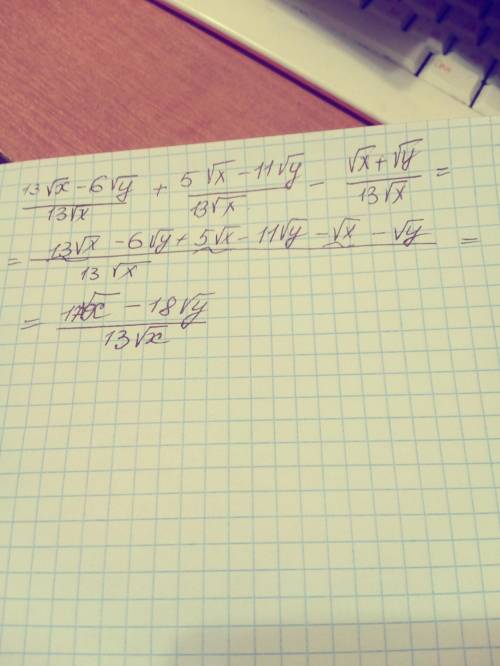 (13√x − 6√y)/(13√x) + (5√x − 11√y)/(13√x) − (√x + √y)/(13√x) =
= (13√x − 6√y + 5√x − 11√y − √x − √y)/(13√x) =
= (17√x − 18√y)/(13√x)